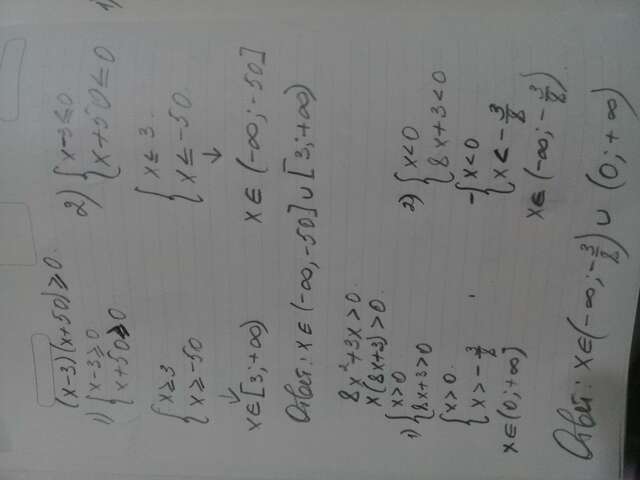 (x-3)(x+50)≥0.
1) {x-3≥0
{x+50≥0
{x≥3
{x≥-50
↓
x∈[3;+∞)
2) {x-3≤0
{x+50≤0
{x≤3.
{x≤-50
↓
x∈(-∞;-50]
Ответ: x∈(-∞;-50]∪[3;+∞)
8x²+3x>0.
x(8x+3)>0.
1) {x>0
{8x+3>0
{x>0.
{x>-3/8
x∈(0;+∞)
2) {x<0
{8x+3<0
{x<0
{x<-3/8
x∈(-∞;-3/8)
Ответ: x∈(-∞;-3/8)∪(0;+∞)